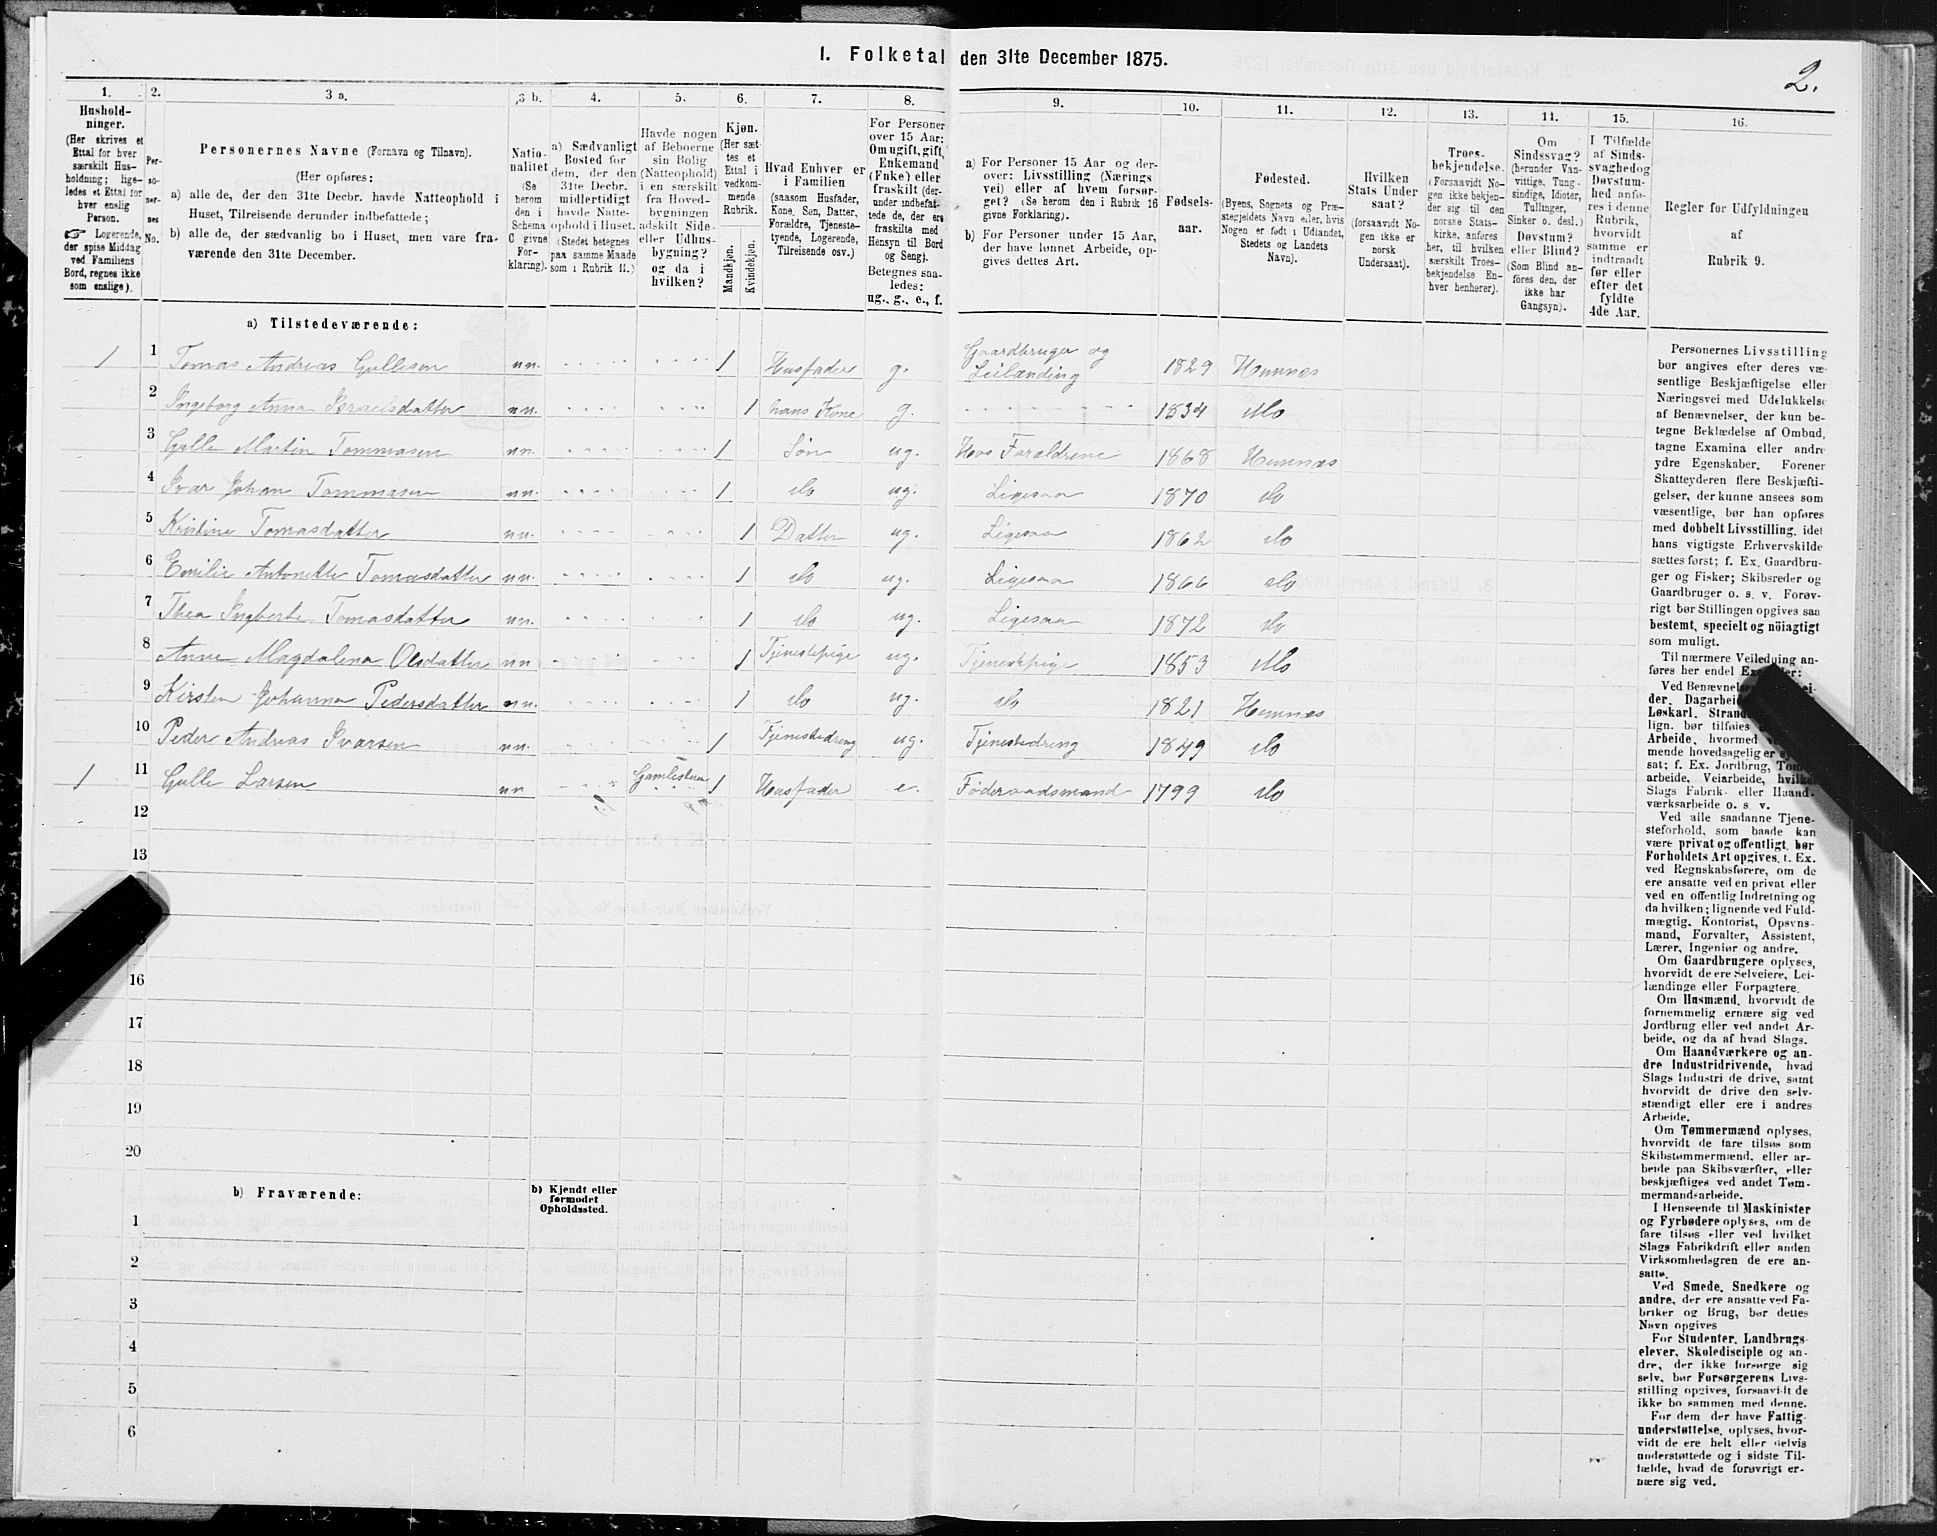 1. Folketal den 31te December 1875.
2.
1.
Hushold-
ninger.
(Her skrives et
Ettal for hver
særskilt Hus-
holdning; lige-
ledes et Ettal for
hver enslig
Person.
☞ Logerende,
der spise Middag
ved Familiens
Bord, regnes ikke
som enslige).
2.
Per-
so-
ner-
nes
No.
3 a.
Personernes Navne (Fornavn og Tilnavn).
(Her opføres:
a) alle de, der den 31te Decbr. havde Natteophold i
Huset, Tilreisende derunder indbefattede;
b) alle de, der sædvanlig bo i Huset, men vare fra-
værende den 31te December.
3 b.
Natio-
nalitet
(Se
herom
den i
Schema
C givne
For-
klaring).
4.
a) Sædvanligt
Bosted for
dem, der den
31te Decbr.
midlertidigt
havde Natte-
ophold i Huset.
(Stedet betegnes
paa samme Maade
som i Rubrik 11.)
5.
Havde nogen
af Beboerne
sin Bolig
(Natteophold)
i en særskilt
fra Hoved-
bygningen
adskilt Side-
eller Udhus-
bygning?
og da i
hvilken?
6.
Kjøn.
(Her sæt-
tes et
Ettal i
vedkom-
mende
Rubrik.
Mandkjøn.
Kvindekjøn.
7.
Hvad Enhver er
i Familien
(saasom Husfader,
Kone, Søn, Datter,
Forældre, Tjeneste-
tyende, Logerende,
Tilreisende osv.)
8.
For Personer
over 15 Aar:
Om ugift, gift,
Enkemand
(Enke) eller
fraskilt (der-
under indbefat-
tede de, der ere
fraskilte med
Hensyn til Bord
og Seng).
Betegnes saa-
ledes:
ug., g., e., f.
9.
a) For Personer 15 Aar og der-
over: Livsstilling (Nærings
vei) eller af hvem forsør-
get? (Se herom den i Rubrik 16
givne Forklaring).
b) For Personer under 15 Aar,
der have lønnet Arbeide, op-
gives dettes Art.
10.
Fødsels-
aar.
11.
Fødested.
(Byens, Sognets og Præ-
stegjeldets Navn eller, hvis
Nogen er født i Udlandet,
Stedets og Landets
Navn).
12.
Hvilken
Stats Under
saat?
(forsaavidt No-
gen ikke er
norsk
Undersaat).
13.
Troes-
bekjendelse.
(Forsaavidt No-
gen ikke bekjen-
der sig til den
norske Stats-
kirke, anføres
her, til hvilken
særskilt Troes-
bekjendelse En-
hver henhører).
14.
Om
Sindssvag?
(herunder Van-
vittige, Tung-
sindige, Idioter,
Tullinger,
Sinker o. desl.)
Døvstum?
eller Blind?
(Som Blind an-
føres den, der
ikke har
Gangsyn).
15.
I Tilfælde
af Sinds-
svaghed og
Døvstum-
hed anfø-
res i denne
Rubrik,
hvorvidt
samme er
indtraadt
før eller
efter det
fyldte
4de Aar.
16.
Regler for Udfyldningen
af
Rubrik 9.
a) Tilstedeværende:
1 1 Tomas Andreas Gullesen nn. 1 Husfader g. Gaardbruger og Leilænding 1829 Hemnæs
2 Ingeborg Anna Israelsdatter nn. 1 hans Kone g. 1834 Mo
3 Gulle Martin Tommasen nn. 1 Søn ug. Hos Forældrene 1868 Hemnæs
4 Ivar Johan Tommasen nn. 1 do ug. Ligesaa 1870 do
5 Kristine Tomasdatter nn. 1 Datter ug. Ligesaa 1862 do
6 Emilie Antonette Tomasdatter nn. 1 do ug. Ligesaa 1866 do
7 Thea Ingberte Tomasdatter nn. 1 do ug. Ligesaa 1872 do
8 Anne Magdalena Olsdatter nn 1 Tjenestepige ug. Tjenestepige 1853 Mo
9 Kirsten Johanna Pedersdatter nn. 1 do ug. do 1821 Hemnæs
10 Peder Andreas Ivarsen nn. 1 Tjenestedreng ug. Tjenestedreng 1849 do
1 11 Gulle Larsen nn Gamlestua 1 Husfader e. Føderaadsmand 1799 do
12
13
16
17
18
19
20
b) Fraværende:
b) Kjendt eller
formodet
Opholdssted.
1
2
3
4
5
6
Personernes Livsstilling
bør angives efter deres væ-
sentlige Beskjæftigelse eller
Næringsvei med Udelukkelse
af Benævnelser, der kun be-
tegne Beklædelse af Ombud,
tagne Examina eller andre
ydre Egenskaber. Forener
Skatteyderen flere Beskjæfti-
gelser, der kunne ansees som
væsentlige, bør han opføres
med dobbelt Livsstilling, idet
hans vigtigste Erhvervskilde
sættes først; f. Ex. Gaardbru-
ger og Fisker; Skibsreder og
Gaardbruger o. s. v. Forøv-
rigt bør Stillingen opgives saa
bestemt, specielt og nöiagtigt
som muligt.
Til nærmere Veiledning an-
føres her endel
Ved Benævnelse
der, Dagarbei
Løskarl, Strand
lign. bør tilføies
Arbeide, hvormed
mende hovedsagelig er
sat; f. Ex. Jordbrug,
arbeide, Veiarbeide, hvilke
Slags Fabrik- eller Haand-
værksarbeide o. s. v.
Ved alle saadanne Tjene-
steforhold, som baade kan
være privat og offentligt, bør
Forholdets Art opgives, t. Ex.
ved Regnskabsførere, om de
ere ansatte ved en privat eller
ved en offentlig Indretning og
da hvilken; lignende ved Fuld-
mægtig, Kontorist, Opsyns-
mand, Forvalter, Assistent,
Lærer, Ingeniør og andre.
Om Gaardbrugere oplyses,
hvorvidt de ere Selveiere, Lei-
lændinge eller Forpagtere.
Om Husmænd, hvorvidt de
fornemmelig ernære sig ved
Jordbrug eller ved andet Ar-
beide, og da af hvad Slags.
Om Haandværkere og an-
dre Industridrivende, hvad
Slags Industri de drive, samt
hvorvidt de drive den selv-
stændigt eller ere i andres
Arbeide.
Om Tømmermænd oplyses,
hvorvidt de fare tilsøs som
Skibstømmermænd, eller ar-
beide paa Skibsværfter, eller
beskjæftiges ved andet Tøm-
mermandsarbeide.
I Henseende til Maskinister
og Fyrbødere oplyses, om de
fare tilsøs eller ved hvilket
Slags Fabrikdrift eller anden
Virksomhedsgren de ere an-
satte.
Ved Smede, Snedkere og
andre, der ere ansatte ved Fa-
briker og Brug, bør dettes
Navn opgives
For Studenter, Landbrugs-
elever, Skoledisciple og an-
dre, der ikke forsørge sig
selv, bør Forsørgerens Livs-
stilling opgives, forsaavidt de
ikke bo sammen med denne.
For dem der have Fattig-
understøttelse, oplyses, hvor-
vidt de ere helt eller delvis
understøttede og i sidste Til-
fælde, hvad de forøvrigt er-
nære sig ved.